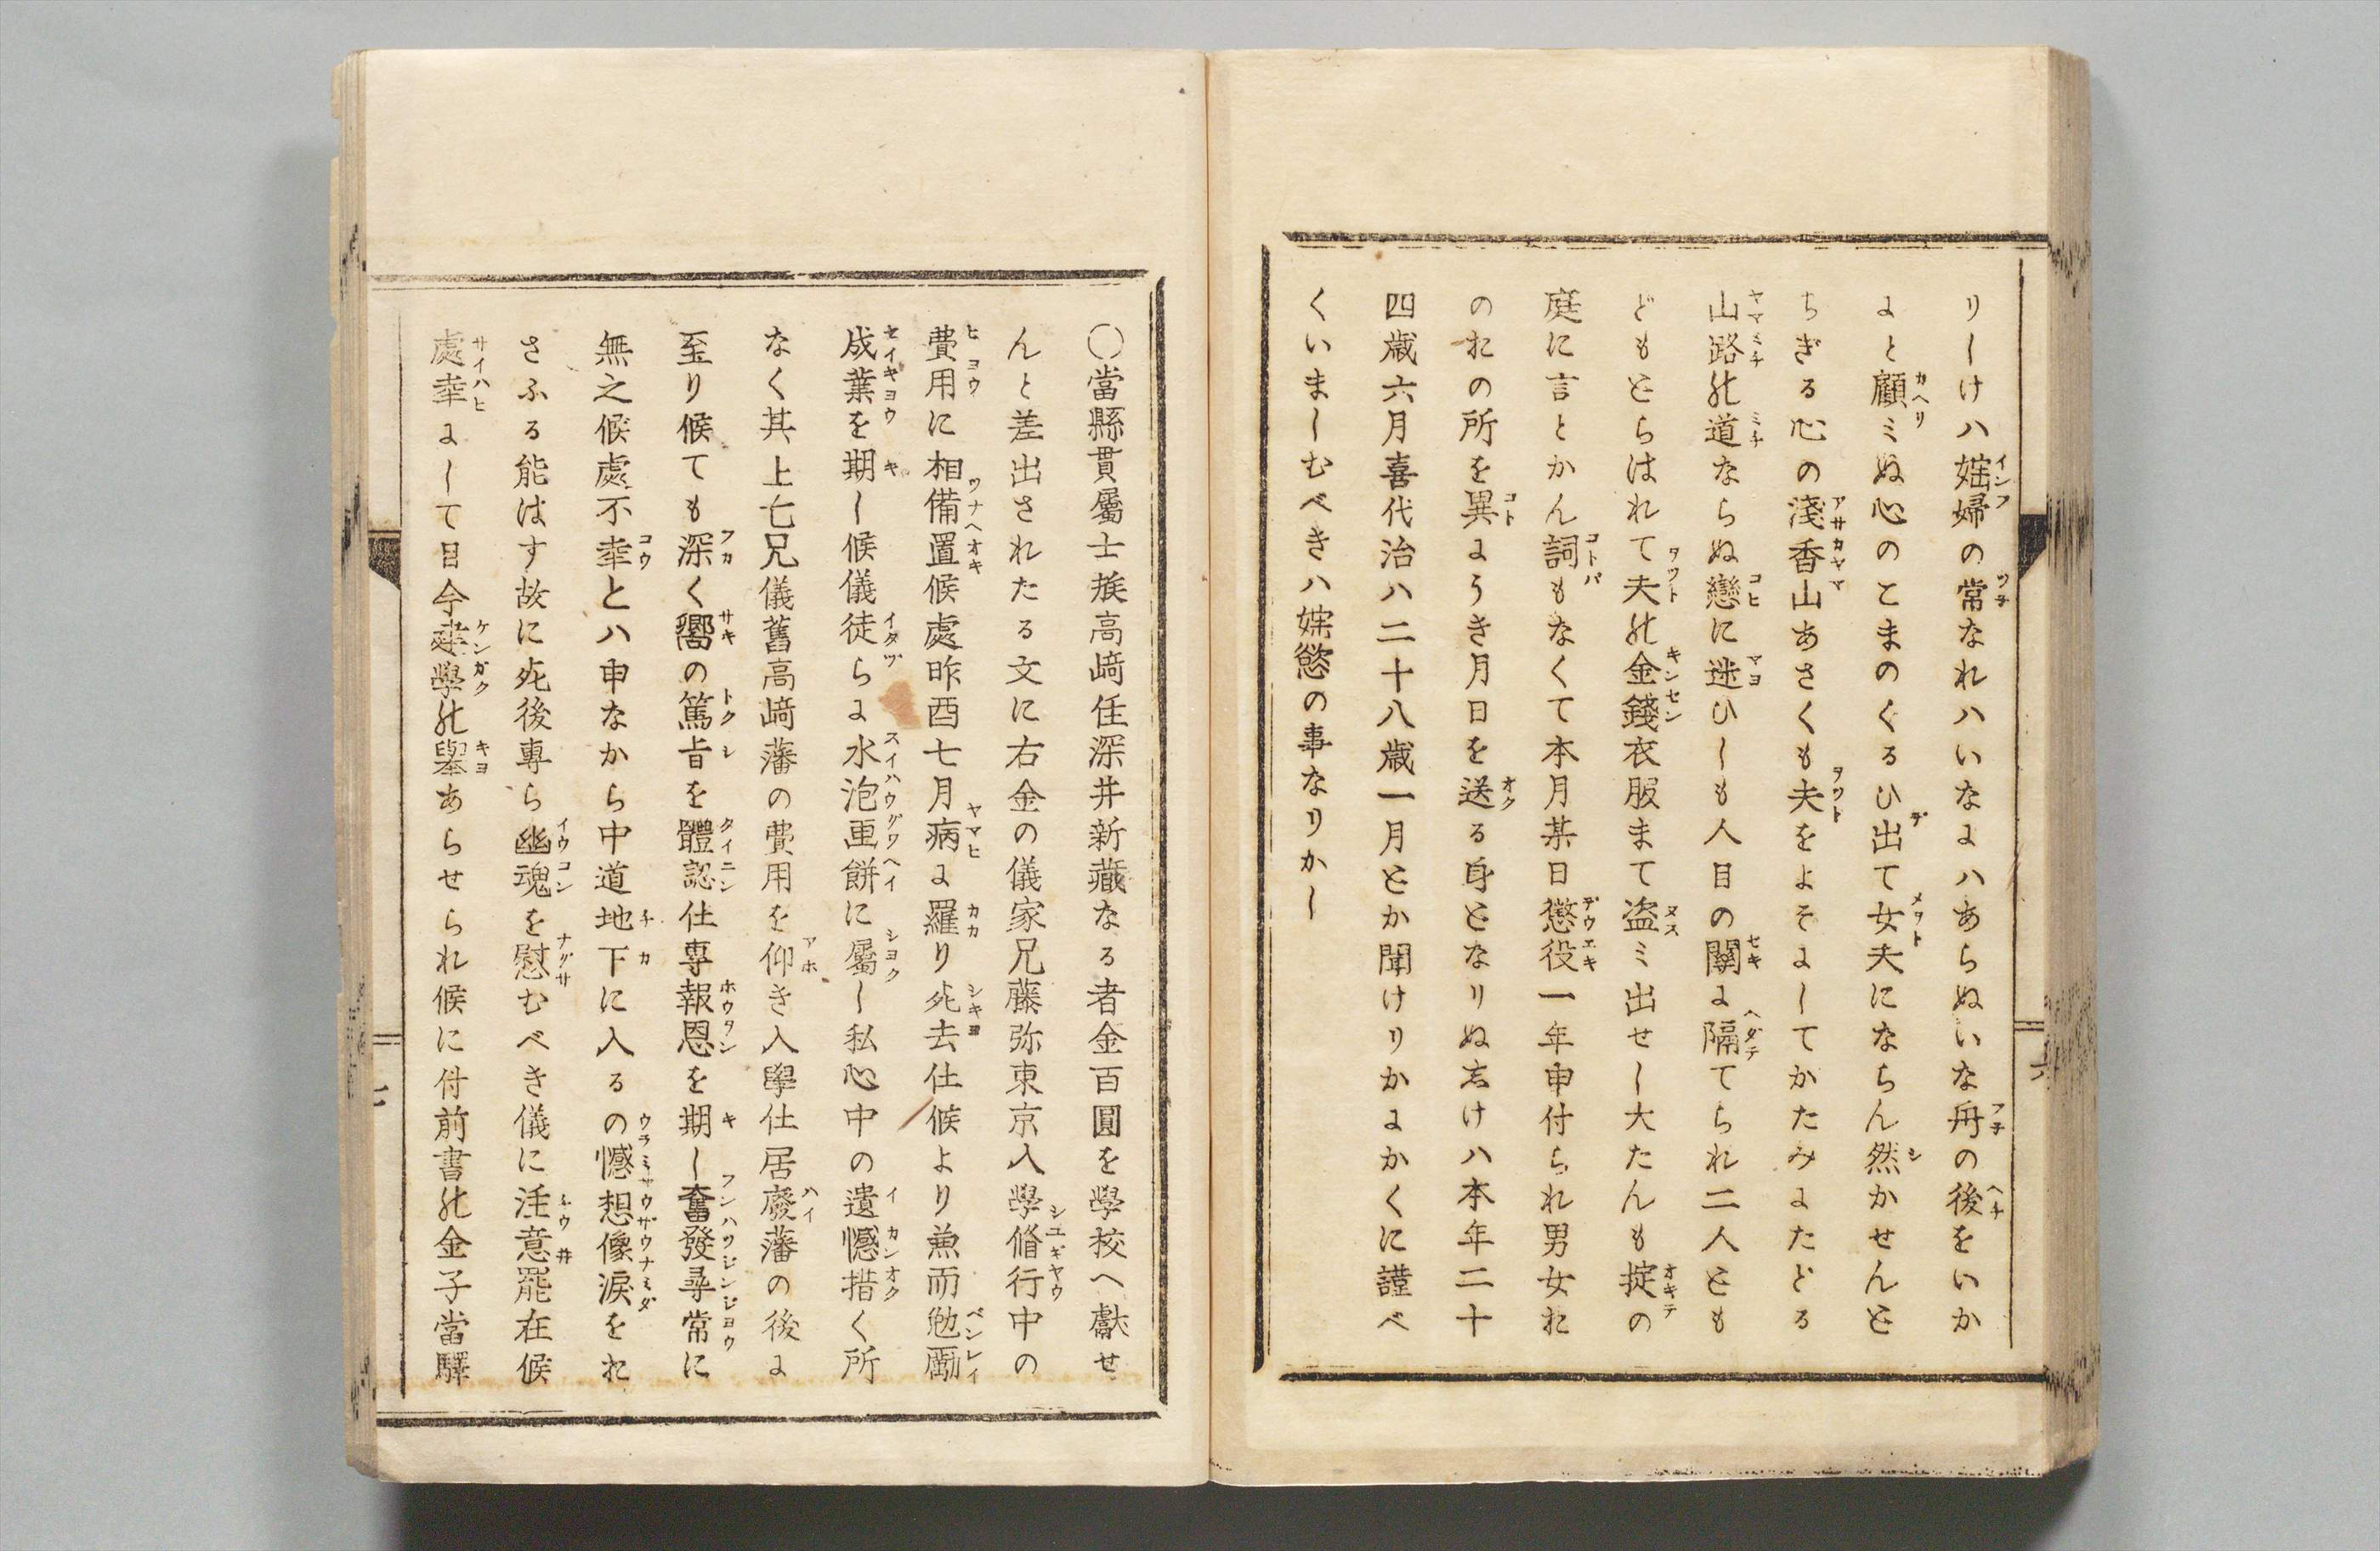 りしけハ婬婦の常なれハいなにハあらぬいな舟の後をいか
にと顧ミぬ心のこまのくるひ出て女夫にならん然かせんと
ちぎる心の淺香山あさくも夫をよそにしてかたみにたどる
山路の道ならぬ戀に迷ひしも人目の關に隔てられ二人とも
どもとらはれて夫の金錢衣服まて盗ミ出せし大たんも掟の
庭に言とかん詞もなくて本月某日懲役一年申付られ男女お
のおの所を異にうき月日を送る身となりぬおけハ本年二十
四歳六月喜代治ハ二十八歳一月とか聞けりかにかくに謹べ
くいましむべきハ婬慾の事なりかし
〇當縣貫屬士族高﨑住深井新藏なる者金百圓を學校へ獻せ
んと差出されたる文に右金の儀家兄藤弥東京入學脩行中の
費用に相備置候處昨酉七月病に羅り死去仕候より兼而勉勵
成業を期し候儀徒らに水泡画餅に屬し私心中の遺憾措く所
なく其上亡兄儀舊高﨑藩の費用を仰き入學仕居廢藩の後に
至り候ても深く嚮の篤旨を體認仕專報恩を期し奮發尋常に
無之候處不幸とハ申なから中道地下に入るの憾想像淚をお
さふる能はす故に死後專ら幽魂を慰むべき儀に注意罷在候
處幸にして目今建學の擧あらせられ候に付前書の金子當驛